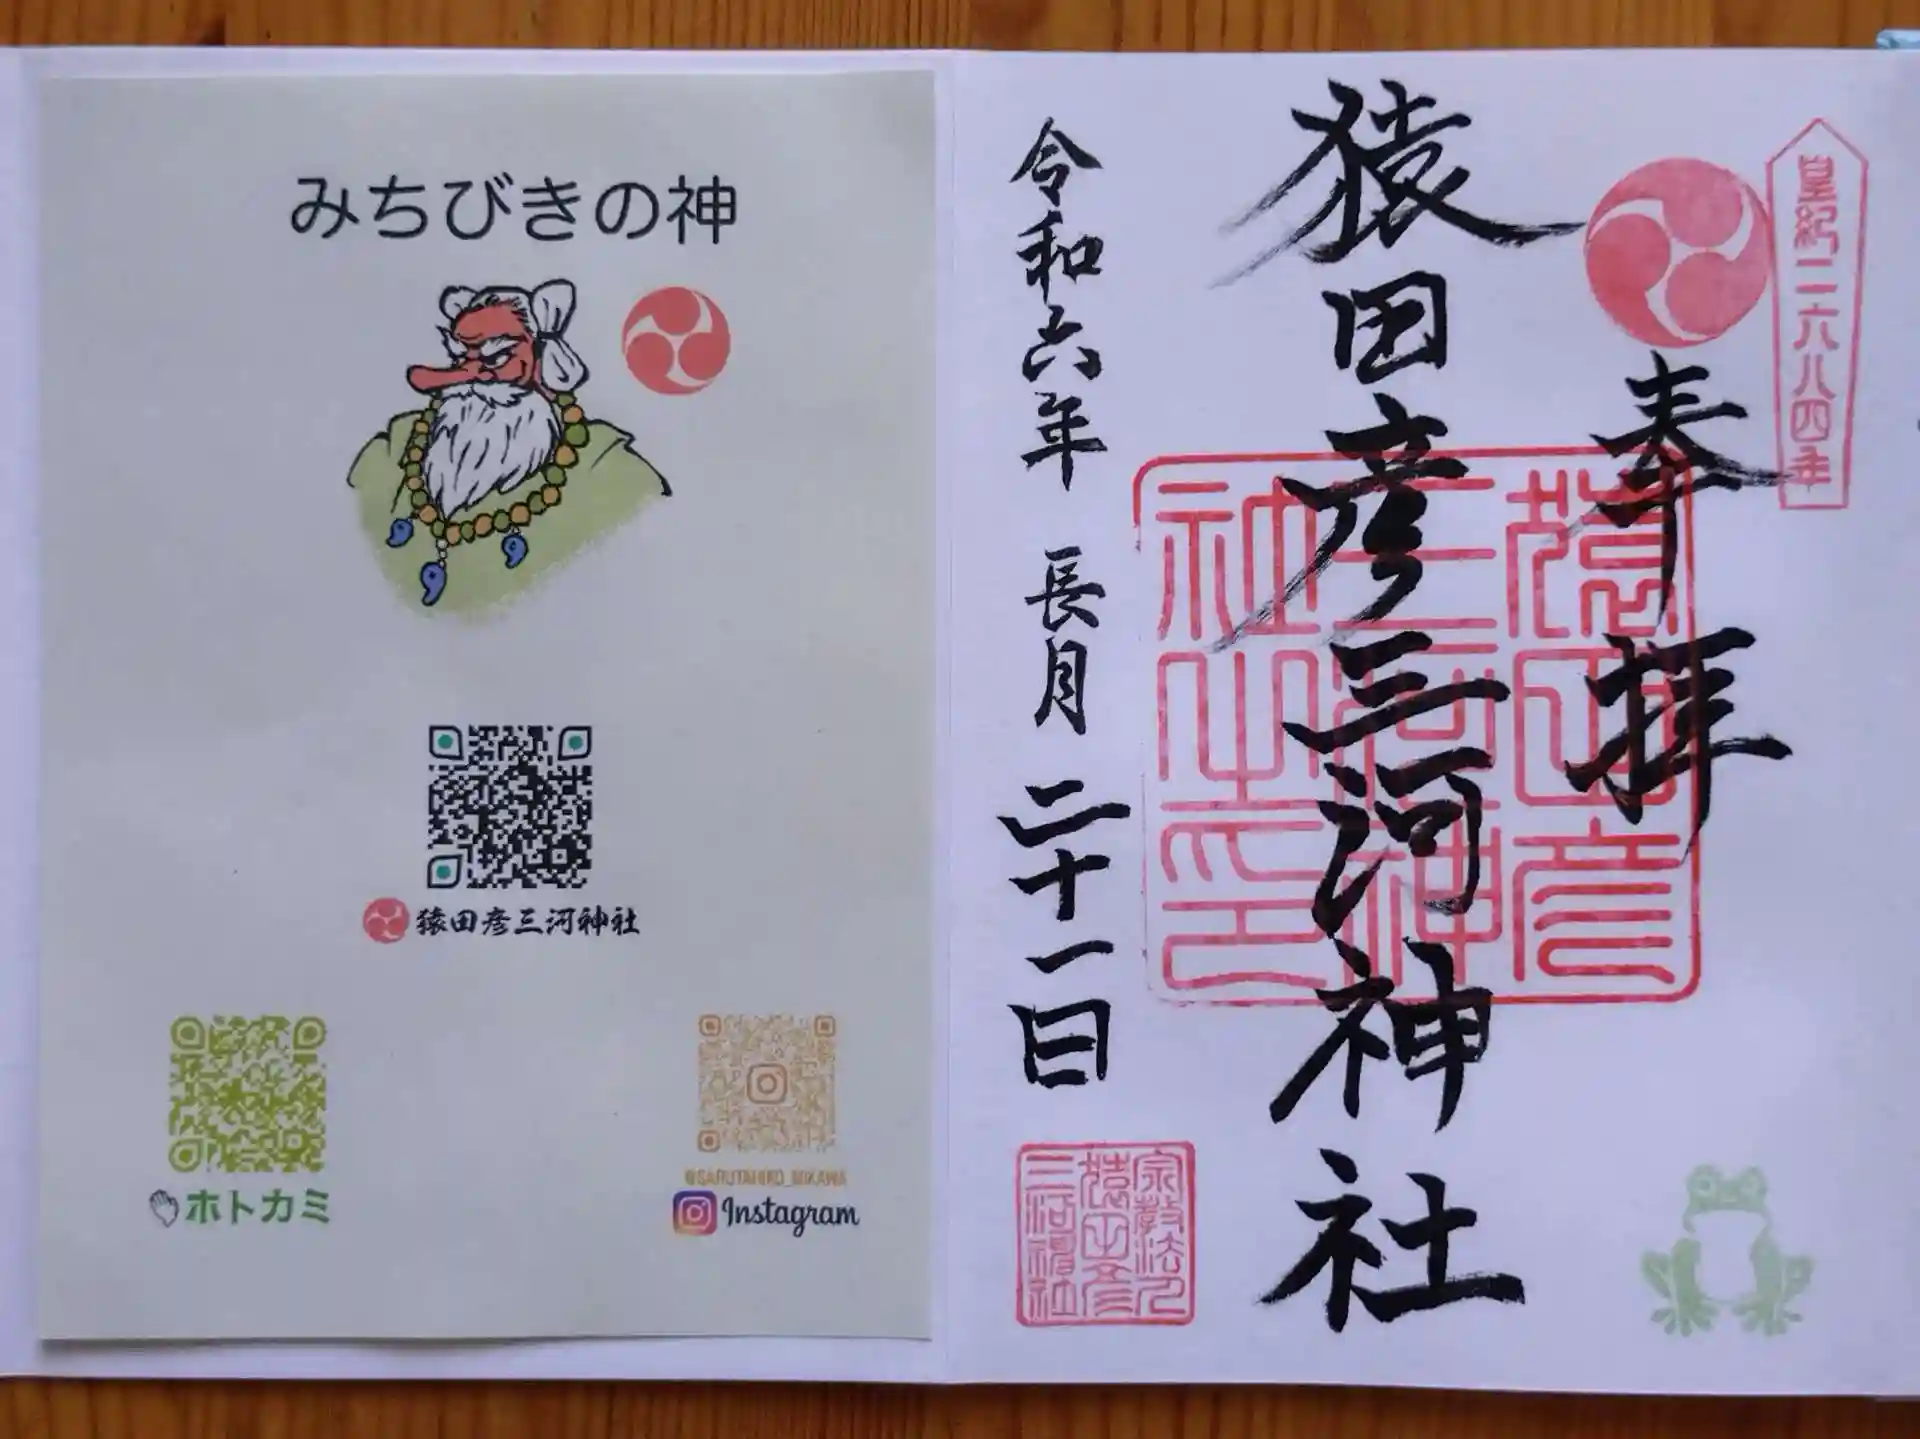 みちびきの神
猿田彦三河神社
ホトカミ
@SARUTAHIKO_MIKAWA
Instagram
皇紀二六八四年
奉拝
猿田彦三河神社
猿田彦三河神社之印
令和六年 長月 二十一日
宗教法人猿田彦三河神社